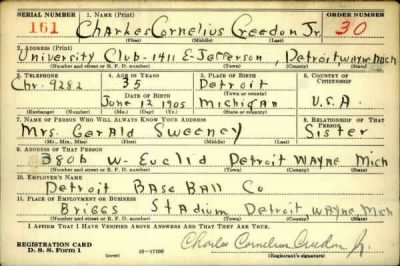 SERIAL NUMBER 1. NAME (Print) ORDER NUMBER
161 Charles Cornelius Creedon Jr. 30
(First) (Middle) (Last)
2. ADDRESS (Print)
University Club-1411 E-Jefferson, Detroit Wayne Mich
(Number and street or R. F. D. number) (Town) (County) (State)
3. TELEPHONE 4. AGE IN YEARS 5. PLACE OF BIRTH 6. COUNTRY OF CITIZENSHIP
Chr. 9282 35 Detroit
DATE OF BIRTH (Town or county)
June 12 1905 Michigan U.S.A.
(Exchange) (Number) (Mo.) (Day) (Yr.) (State or country)
7. NAME OF PERSON WHO WILL ALWAYS KNOW YOUR ADDRESS 8. RELATIONSHIP OF THAT PERSON
Mrs. Gerald Sweeney Sister
(Mr., Mrs., Miss) (First) (Middle) (Last)
9. ADDRESS OF THAT PERSON
3806 W-Euclid Detroit Wayne Mich
(Number and street or R. F. D. number) (Town) (County) (State)
10. EMPLOYER'S NAME
Detroit Base Ball Co
11. PLACE OF EMPLOYMENT OR BUSINESS
Briggs Stadium Detroit Wayne Mich
(Number and street or R. F. D. number) (Town) (County) (State)
I AFFIRM THAT I HAVE VERIFIED ABOVE ANSWERS AND THAT THEY ARE TRUE.
REGISTRATION CARD Charles Cornelius Creedon Jr.
D. S. S. Form 1 (over) 16—17105 (Registrant's signature)